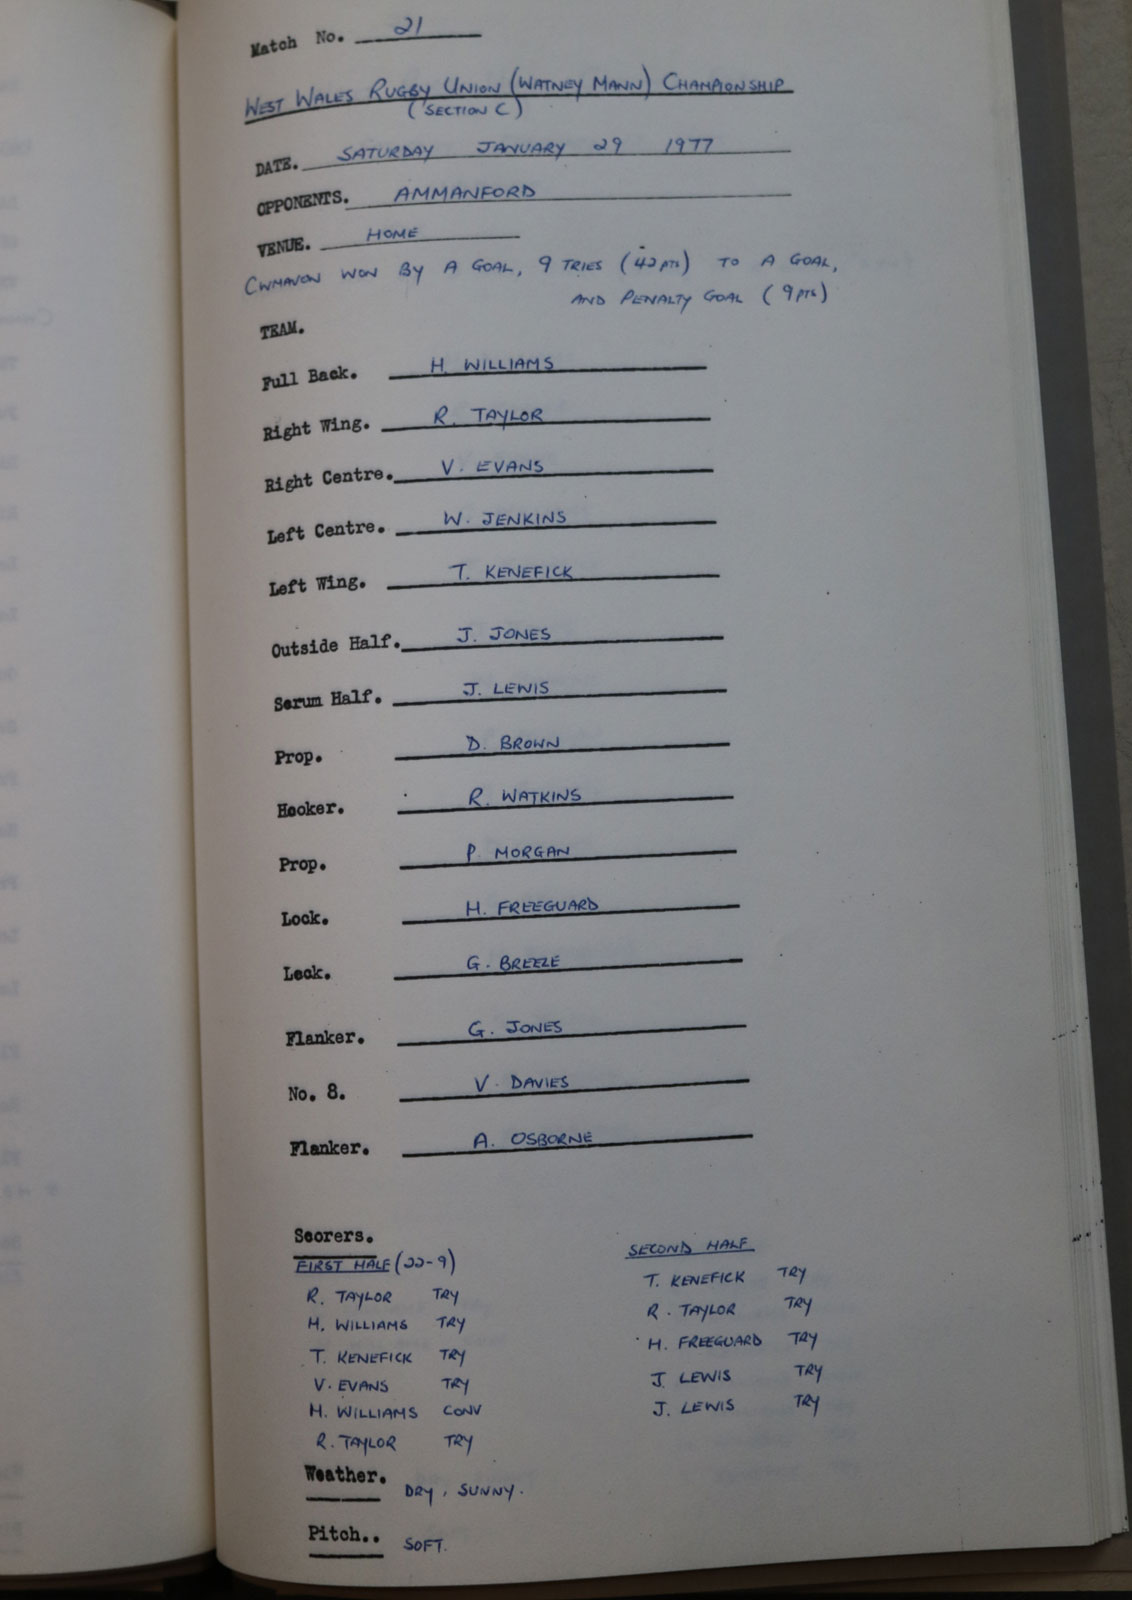 Match No. 21
WEST WALES RUGBY UNION (WATNEY MANN) CHAMPIONSHIP
(SECTION C)
DATE. SATURDAY JANUARY 29 1977
OPPONENTS. AMMANFORD
VENUE. HOME
CWMAVON WON BY A GOAL, 9 TRIES (42 PTS) TO A GOAL,
AND PENALTY GOAL (9 PTS)
TEAM.
Full Back. H. WILLIAMS
Right Wing. R. TAYLOR
Right Centre. V. EVANS
Left Centre. W. JENKINS
Left Wing. T. KENEFICK
Outside Half. J. JONES
Scrum Half. J. LEWIS
Prop. D. BROWN
Hooker. R. WATKINS
Prop. P. MORGAN
Lock. H. FREEGUARD
Lock. G. BREEZE
Flanker. G. JONES
No. 8. V. DAVIES
Flanker. A. OSBORNE
Scorers.
FIRST HALF (22-9)
R. TAYLOR TRY
H. WILLIAMS TRY
T. KENEFICK TRY
V. EVANS TRY
H. WILLIAMS CONV
R. TAYLOR TRY
SECOND HALF
T. KENEFICK TRY
R. TAYLOR TRY
H. FREEGUARD TRY
J. LEWIS TRY
J. LEWIS TRY
Weather. DRY, SUNNY.
Pitch.. SOFT.